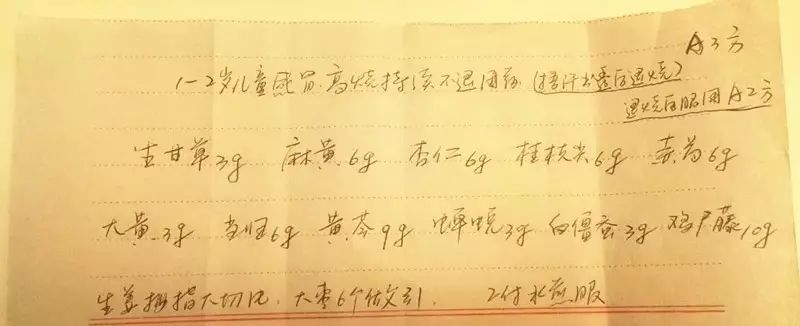 A3方
1-2岁儿童感冒高烧持续不退用药(捂汗出透后退烧)
退烧后服用A2方
生甘草3g 麻黄6g 杏仁6g 桂枝尖6g 赤芍6g
大黄3g 当归6g 黄芩9g 蝉蜕3g 白僵蚕3g 鸡尸藤10g
生姜拇指大切片、大枣6个做引. 2付水煎服